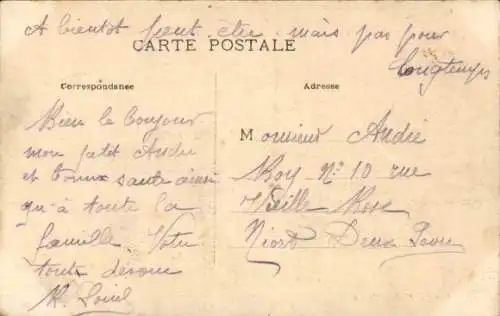 A bientot peut etre mais pas pour
longtemps
CARTE POSTALE
Correspondance
Adresse
Bien le bonjour
mon petit André
et bonne santé ainsi
qu'à toute la
famille. Votre
toute dévouée
Monsieur André
Roy N° 10 rue
Vieille Rose
Niort Deux Sèvres